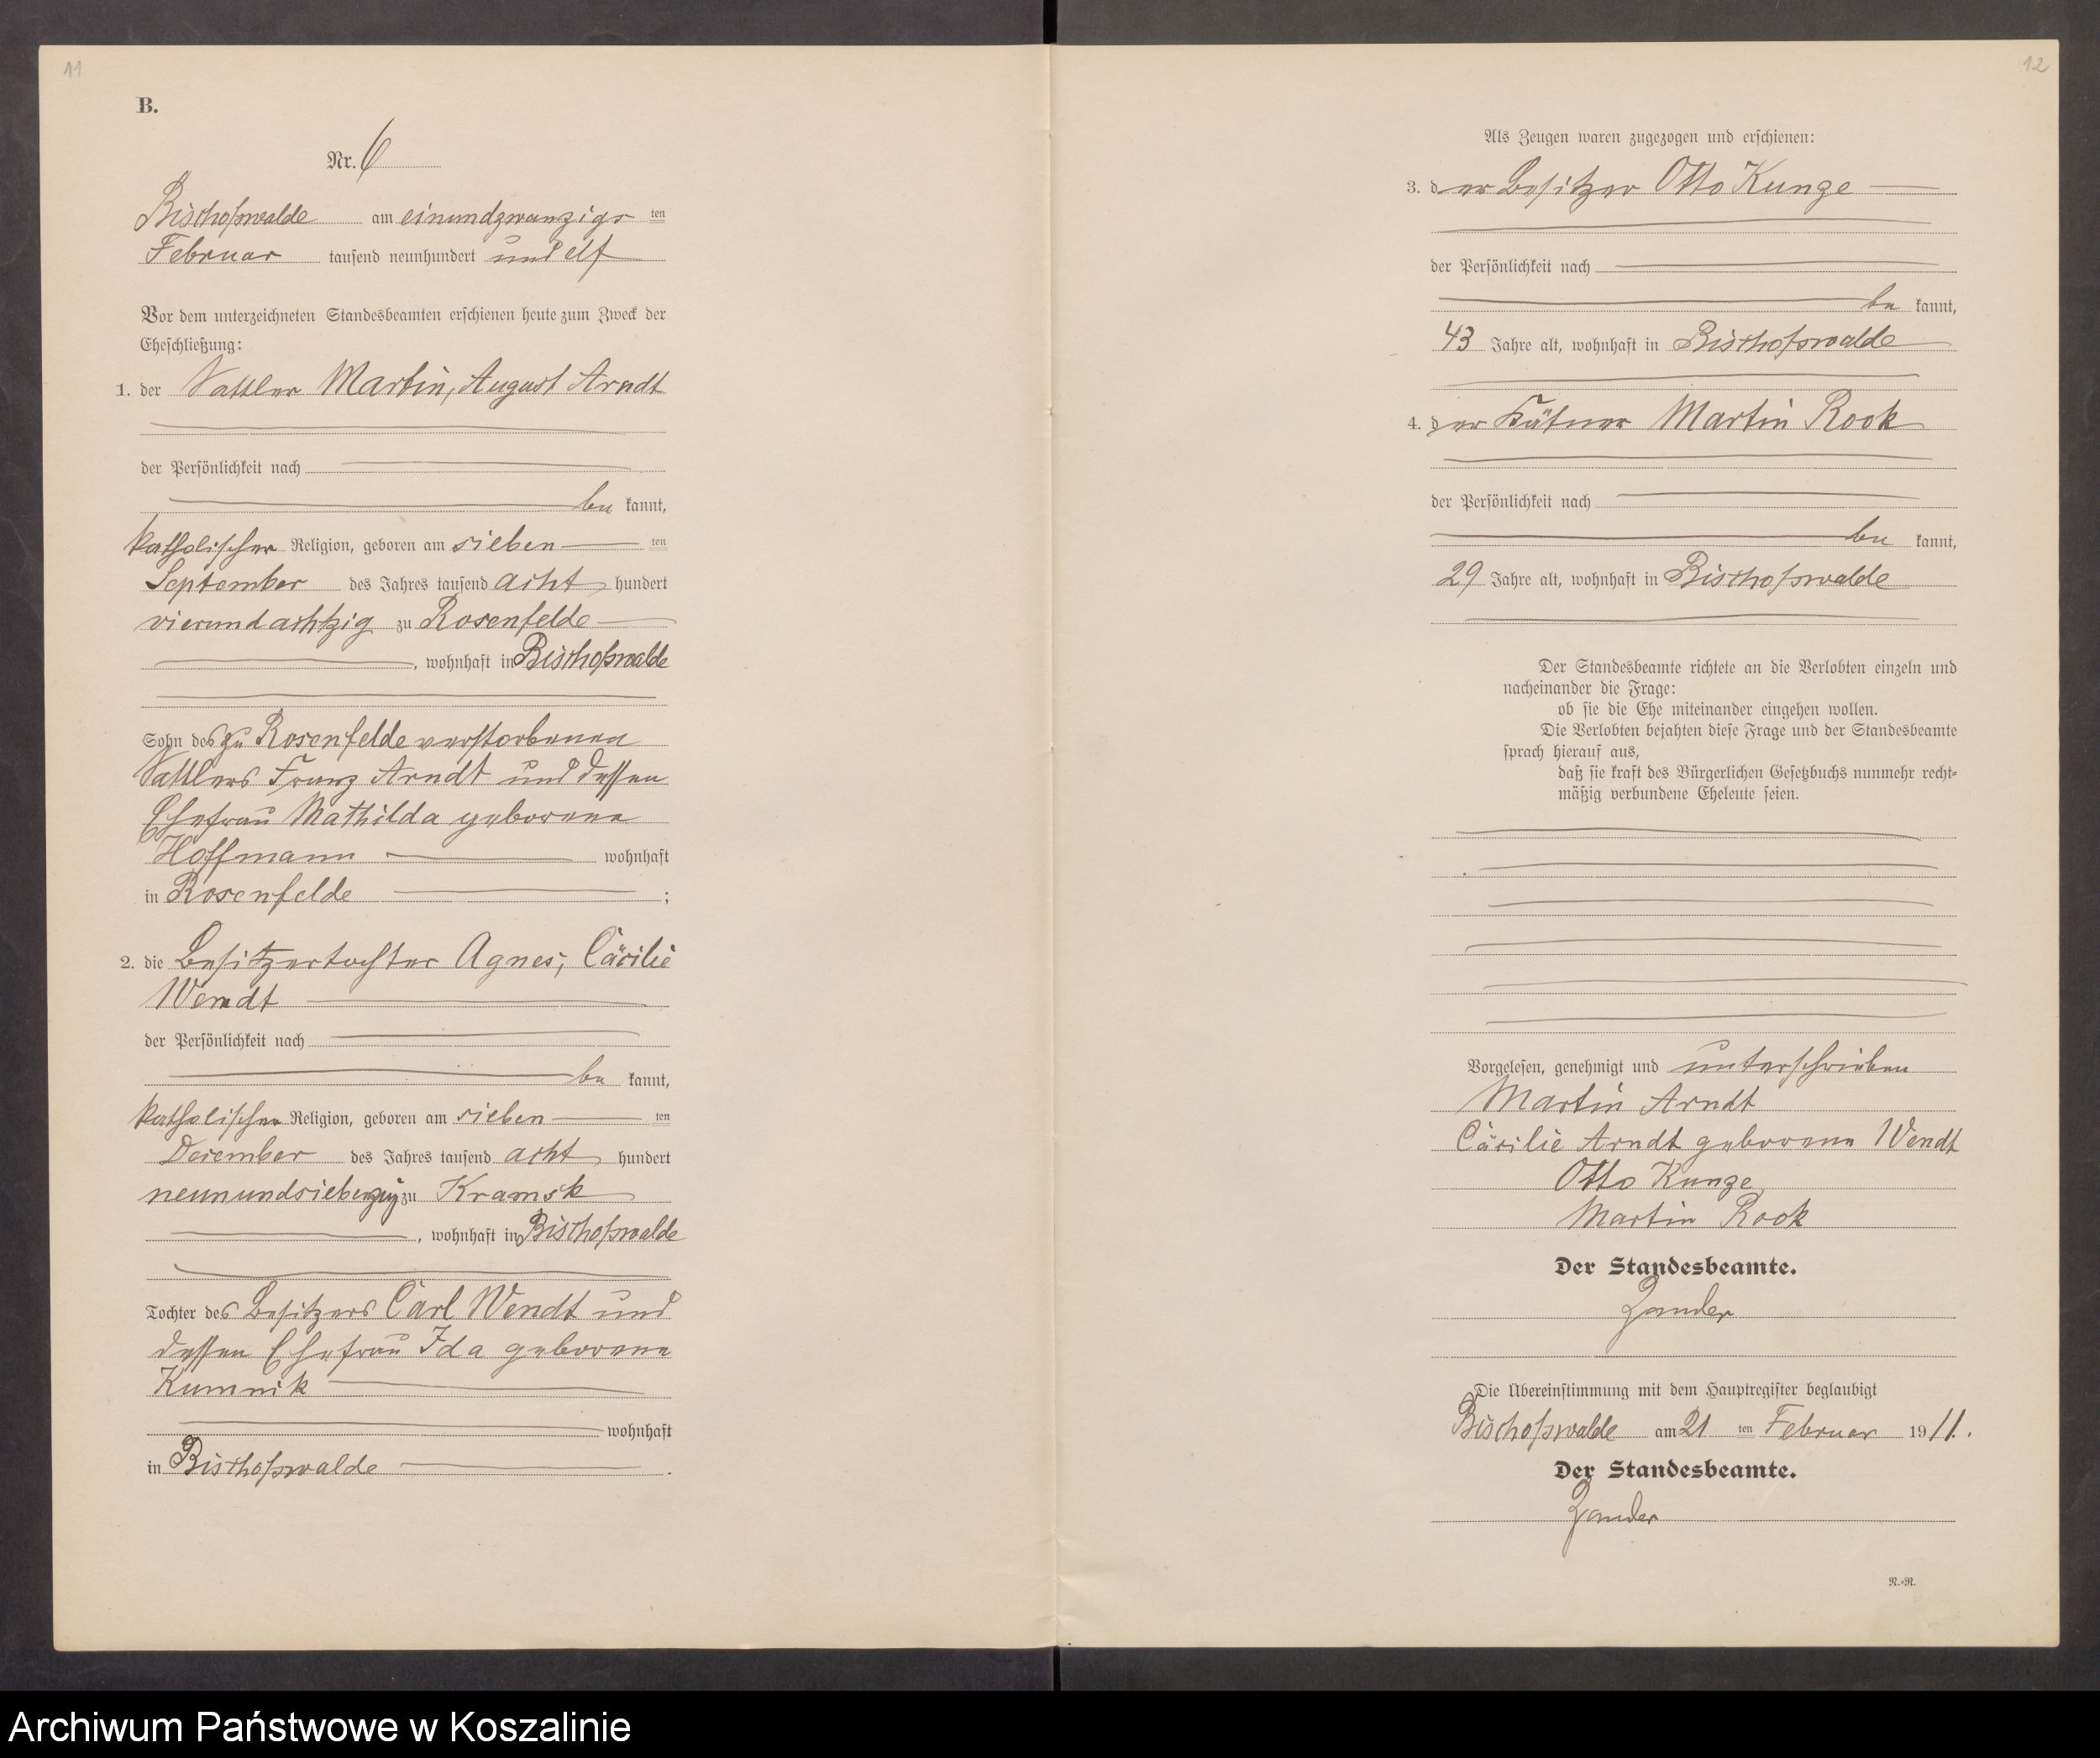 11
B.
Nr. 6
Bischofswalde am einundzwanzigs ten
Februar tausend neunhundert und elf
Vor dem unterzeichneten Standesbeamten erschienen heute zum Zweck der
Eheschließung:
1. der Sattler Martin, August Arndt
der Persönlichkeit nach
be kannt,
katholischer Religion, geboren am sieben ten
September des Jahres tausend acht hundert
vierundachtzig zu Rosenfelde
, wohnhaft in Bischofswalde
Sohn des zu Rosenfelde verstorbenen
Sattlers Franz Arndt und dessen
Ehefrau Mathilda geborene
Hoffmann wohnhaft
in Rosenfelde ;
2. die Besitzertochter Agnes, Cäcilie
Wendt
der Persönlichkeit nach
be kannt,
katholischer Religion, geboren am sieben ten
Dezember des Jahres tausend acht hundert
neunundsiebenzig zu Kramsk
, wohnhaft in Bischofswalde
Tochter des Besitzers Carl Wendt und
dessen Ehefrau Ida geborene
Kumnik
wohnhaft
in Bischofswalde .
12
Als Zeugen waren zugezogen und erschienen:
3. der Besitzer Otto Kunze
der Persönlichkeit nach
be kannt,
43 Jahre alt, wohnhaft in Bischofswalde
4. der Kätner Martin Rook
der Persönlichkeit nach
be kannt,
29 Jahre alt, wohnhaft in Bischofswalde
Der Standesbeamte richtete an die Verlobten einzeln und
nacheinander die Frage:
ob sie die Ehe miteinander eingehen wollen.
Die Verlobten bejahten diese Frage und der Standesbeamte
sprach hierauf aus,
daß sie kraft des Bürgerlichen Gesetzbuchs nunmehr recht-
mäßig verbundene Eheleute seien.
Vorgelesen, genehmigt und unterschrieben
Martin Arndt
Cäcilie Arndt geborene Wendt
Otto Kunze
Martin Rook
Der Standesbeamte.
Zander
Die Übereinstimmung mit dem Hauptregister beglaubigt
Bischofswalde am 21 ten Februar 19 11.
Der Standesbeamte.
Zander
R.-R.
Archiwum Państwowe w Koszalinie